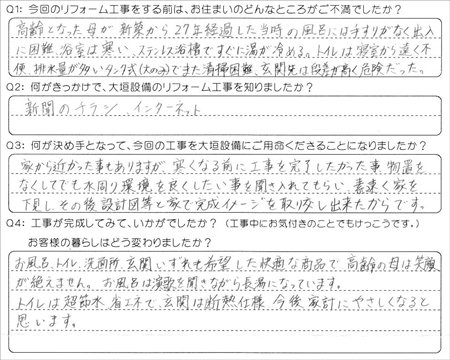 Q1: 今回のリフォーム工事をする前は、お住まいのどんなところがご不満でしたか？
高齢となった母が新築から27年経過した当時の風呂には手すりがなく出入
に困難、浴室は寒い、ステンレス浴槽ですぐに湯が冷める。トイレは寝室から遠く不
便、排水量が多いタンク式(大のみ)でまた清掃困難、玄関先は段差が高く危険だった。
Q2: 何がきっかけで、大垣設備のリフォーム工事を知りましたか？
新聞のチラシ、インターネット
Q3: 何が決め手となって、今回の工事を大垣設備にご用命くださることになりましたか？
家から近かった事もありますが、寒くなる前に工事を完了したかった事、物置を
なくしてでも水周り環境を良くしたい事を聞き入れてもらい、素速く家を
下見し、その後設計図等と家で完成イメージを取り交し出来たからです。
Q4: 工事が完成してみて、いかがでしたか？（工事中にお気付きのことでもけっこうです。）
お客様の暮らしはどう変わりましたか？
お風呂、トイレ、洗面所、玄関いずれも希望した快適な商品で、高齢の母は笑顔
が絶えません。お風呂は演歌を聞きながら長湯になっています。
トイレは超節水、省エネで、玄関は断熱仕様、今後家計にやさしくなると
思います。